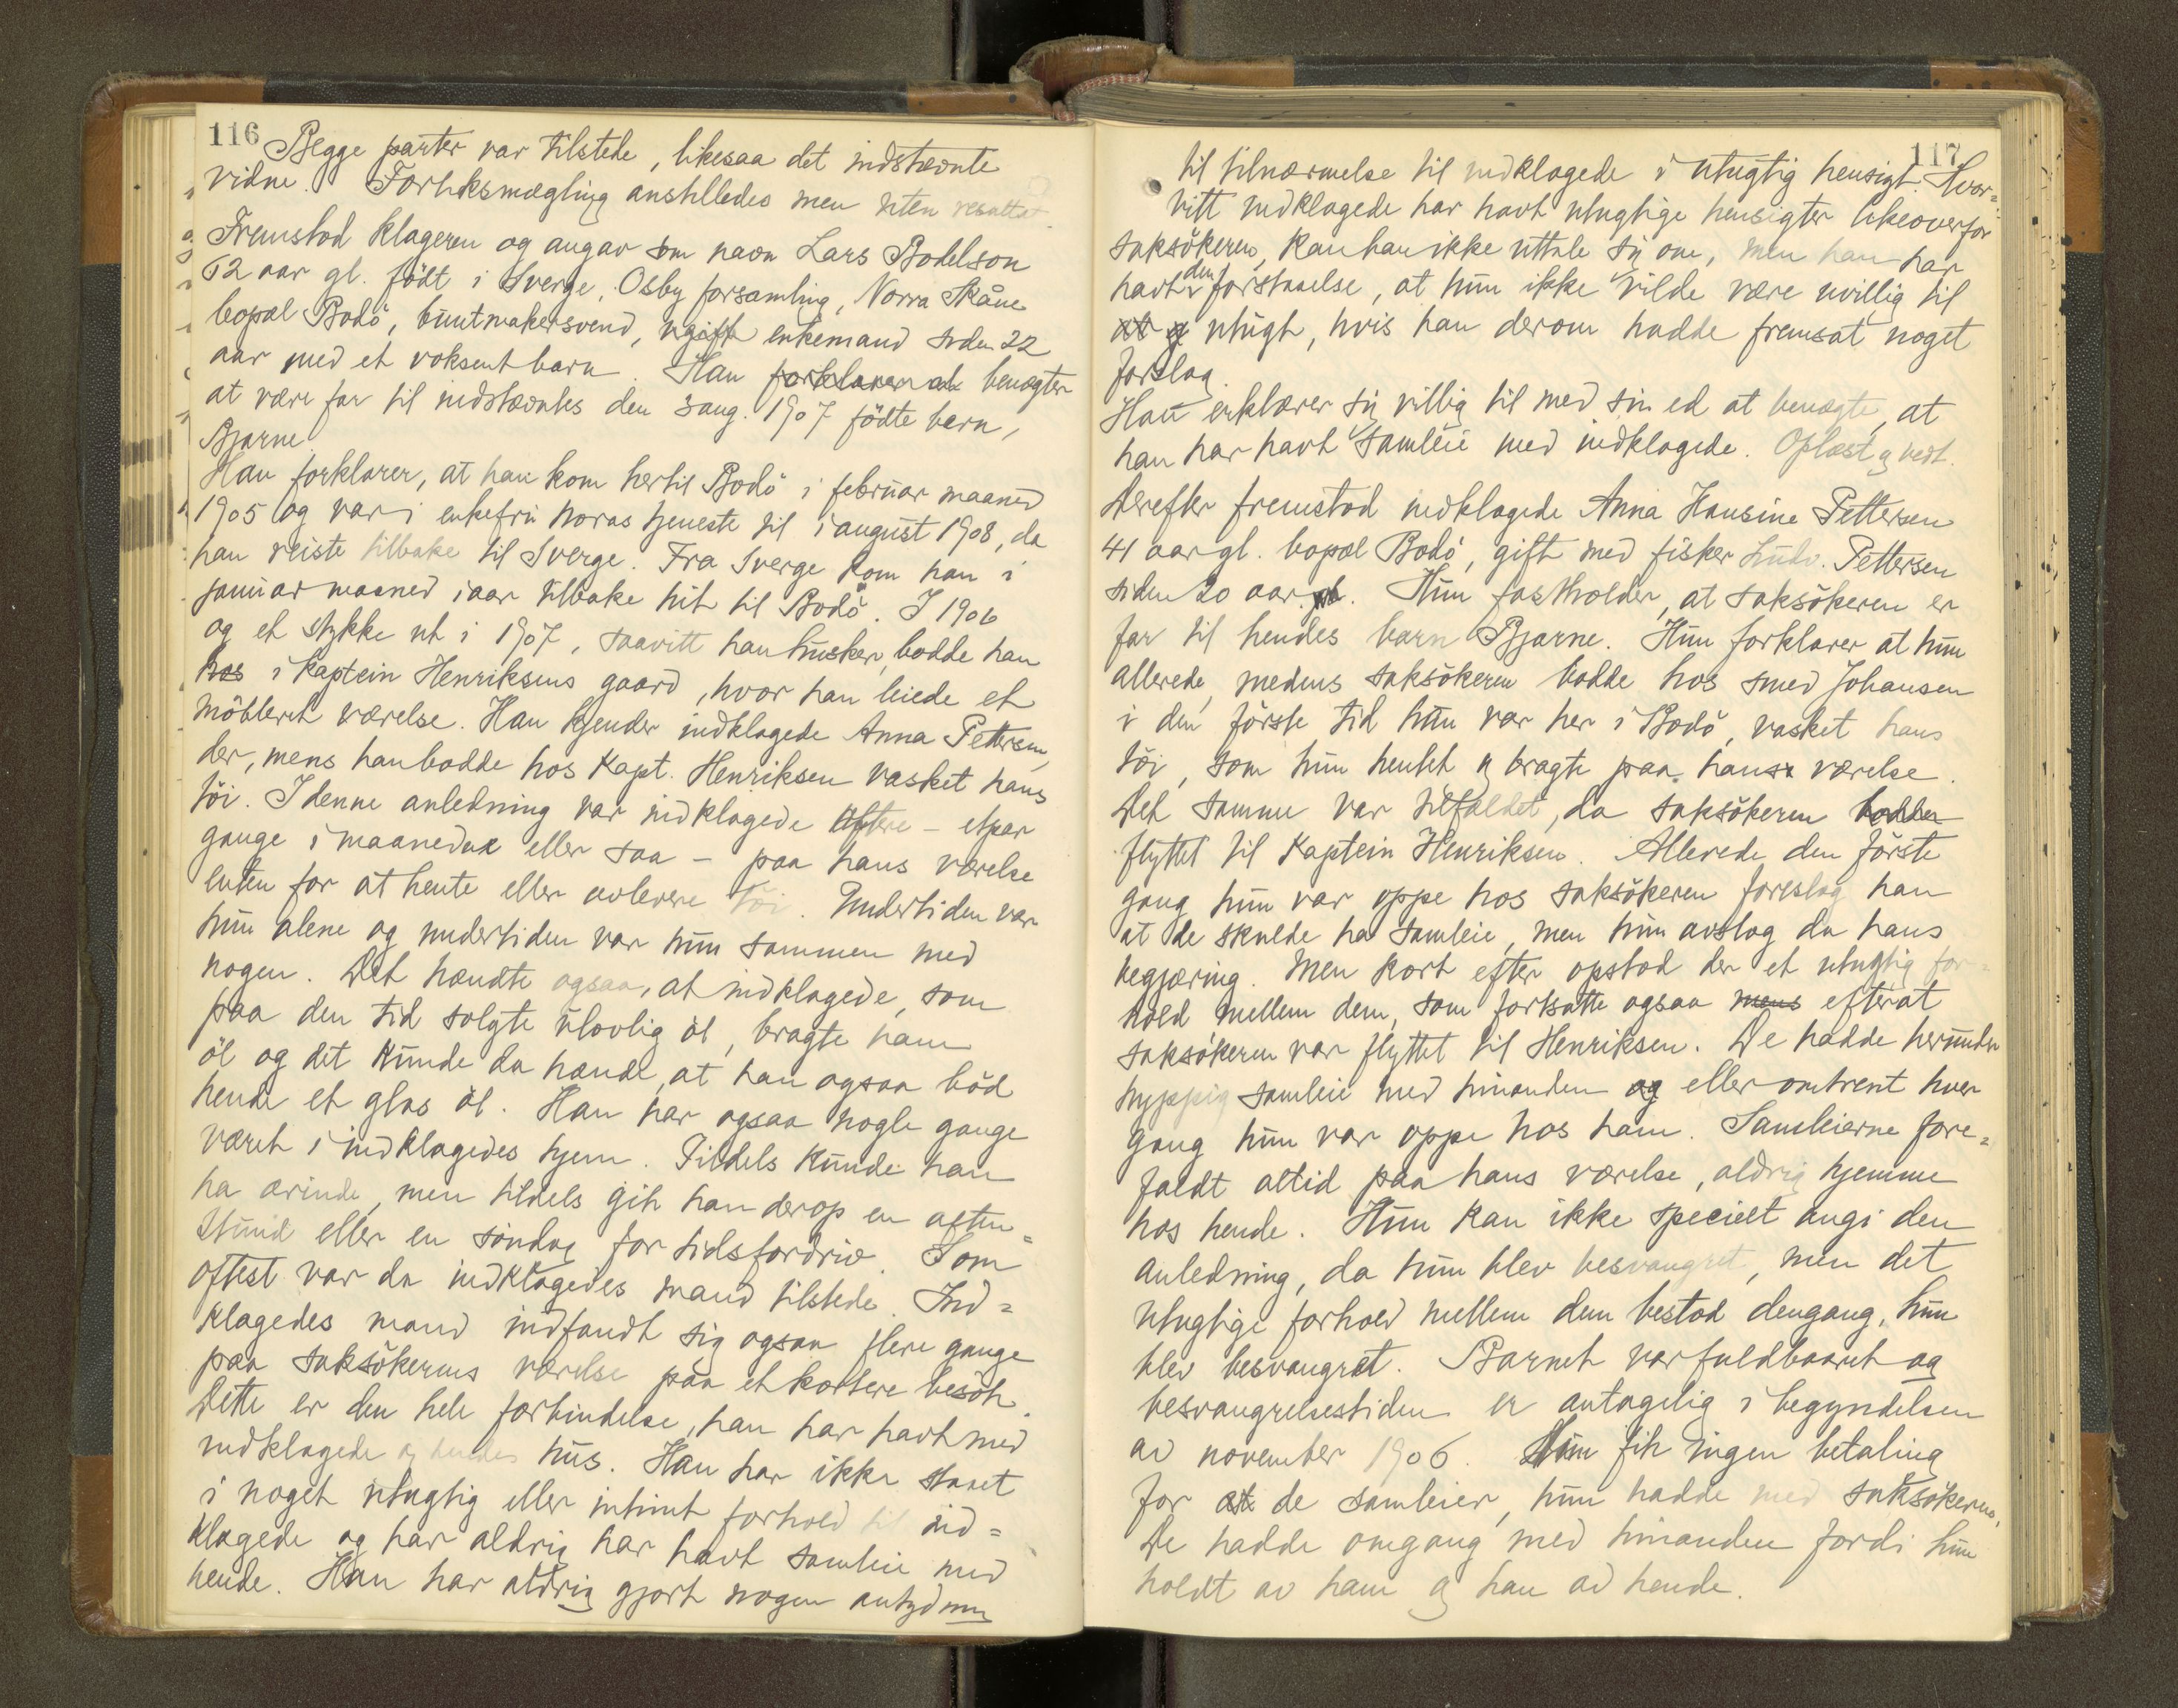 116
Begge parter var tilstede, likesaa det indstævnte
vidne. Forliksmægling anstilledes men uten resultat.
Fremstod klageren og angav som navn Lars Bodelson
62 aar gl. född i Sverge, Osby forsamling, Norra Skåne
bopæl Bodö, buntmakersvend, ugift enkemand siden 22
aar med et voksent barn. Han forklarer at benægter
at være far til indstævntes den 3 aug. 1907 födte barn,
Bjarne.
Han forklarer, at han kom hertil Bodö i februar maaned
1905 og var i enkefru Moras tjeneste til i august 1908, da
han reiste tilbake til Sverge. Fra Sverge kom han i
januar maaned iaar tilbake hit til Bodö. I 1906
og et stykke ut i 1907, saavitt han husker, bodde han
hos i kaptein Henriksens gaard, hvor han leiede et
möbleret værelse. Han kjender indklagede Anna Pettersen,
der, mens han bodde hos Kapt. Henriksen vasket hans
töi. I denne anledning var indklagede oftere - etpar
gange i maaneden eller saa - paa hans værelse
enten for at hente eller avlevere töi. Undertiden var
hun alene og undertiden var hun sammen med
nogen. Det hændte ogsaa, at indklagede, som
paa den tid solgte ulovlig öl, bragte ham
öl og det kunde da hænde, at han ogsaa böd
hende et glas öl. Han har ogsaa nogle gange
været i indklagedes hjem. Tildels kunde han
ha ærinde, men tildels gik han derop en aften=
stund eller en söndag for tidsfordriv. Som
oftest var da indklagedes mand tilstede. Ind=
klagedes mand indfandt sig ogsaa flere gange
paa saksökerens værelse paa et kortere besök.
Dette er den hele forbindelse, han har havt med
indklagede og hendes hus. Han har ikke staaet
i noget utugtig eller intimt forhold til ind=
klagede og har aldrig har havt samleie med
hende. Han har aldrig gjort nogen antydning
117
til tilnærmelse til indklagede i utugtig hensigt. Hvor=
vitt indklagede har havt utugtige hensigter likeoverfor
saksökeren, kan han ikke uttale sig om, men han har
havt den forstaaelse, at hun ikke vilde være uvillig til
at utugt, hvis han derom hadde fremsat noget
forslag.
Han erklærer sig villig til med sin ed at benægte, at
han har havt samleie med indklagede. Oplæst og vedt.
Derefter fremstod indklagede Anna Hansine Pettersen
41 aar gl. bopæl Bodö, gift med fisker Ludv. Pettersen
siden 20 aar. Hun fastholder, at saksökeren er
far til hendes barn Bjarne. Hun forklarer at hun
allerede, medens saksökeren bodde hos smed Johansen
i den förste tid hun var her i Bodö, vasket hans
töi, som hun hentet og bragte paa hans værelse.
Det samme var tilfældet, da saksökeren bodde
flyttet til Kaptein Henriksen. Allerede den förste
gang hun var oppe hos saksökeren foreslog han
at de skulde ha samleie, men hun avslog da hans
begjæring. Men kort efter opstod der et utugtig for=
hold mellem dem, som fortsatte ogsaa mens efterat
saksökeren var flyttet til Henriksen. De hadde herunder
hyppig samleie med hinanden og eller omtrent hver
gang hun var oppe hos ham. Samleierne fore=
faldt altid paa hans værelse, aldrig hjemme
hos hende. Hun kan ikke specielt angi den
anledning, da hun blev besvangret, men det
utugtige forhold mellem dem bestod dengang, hun
blev besvangret. Barnet var fuldbaaret og
besvangrelsestiden er antagelig i begyndelsen
av november 1906. Hun fik ingen betaling
for at de samleier, hun hadde med saksökeren.
De hadde omgang med hinanden fordi hun
holdt av ham og han av hende.